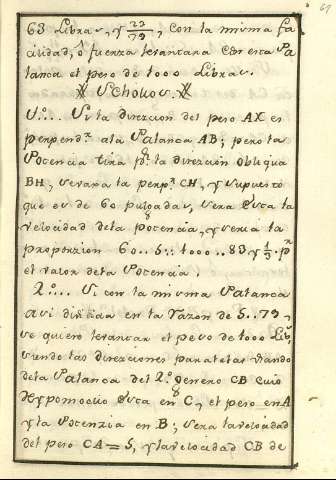 61
63 Libras, y 23/79, con la misma fa
cilidad, ô fuerza levantara con esta Pa
lanca el peso de 1000 Libras.
Scholios.
1º... Si la direzion del peso AX es
perpend.r a la Palanca AB; pero la
Potencia tira p.r la direzion obliqua
BH, tirara la perp.r CH, y supuesto
que es de 60 pulgadas, sera esta la
velocidad de la potencia, y seria la
proporzion 60..5:: 1000..83 y 1/3. p.r
el valor de la Potencia.
2º... Si con la misma Palanca
asi dividida en la razon de 5..79,
se quiere levantar el peso de 1000 Lib.s
siendo las direcciones paralelas usando
de la Palanca del 2º. genero CB cuio
Hypomoclio esta en C, el peso en A
y la Potenzia en B; sera la velocidad
del peso CA=5, y la velocidad CB de